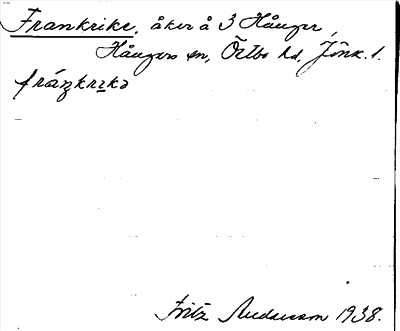 Frankrike, åker å 3 Hånger,
Hångers sn, Östbo hd, Jönk. l.
fráŋkrıkə
Fritz Andersson 1938.